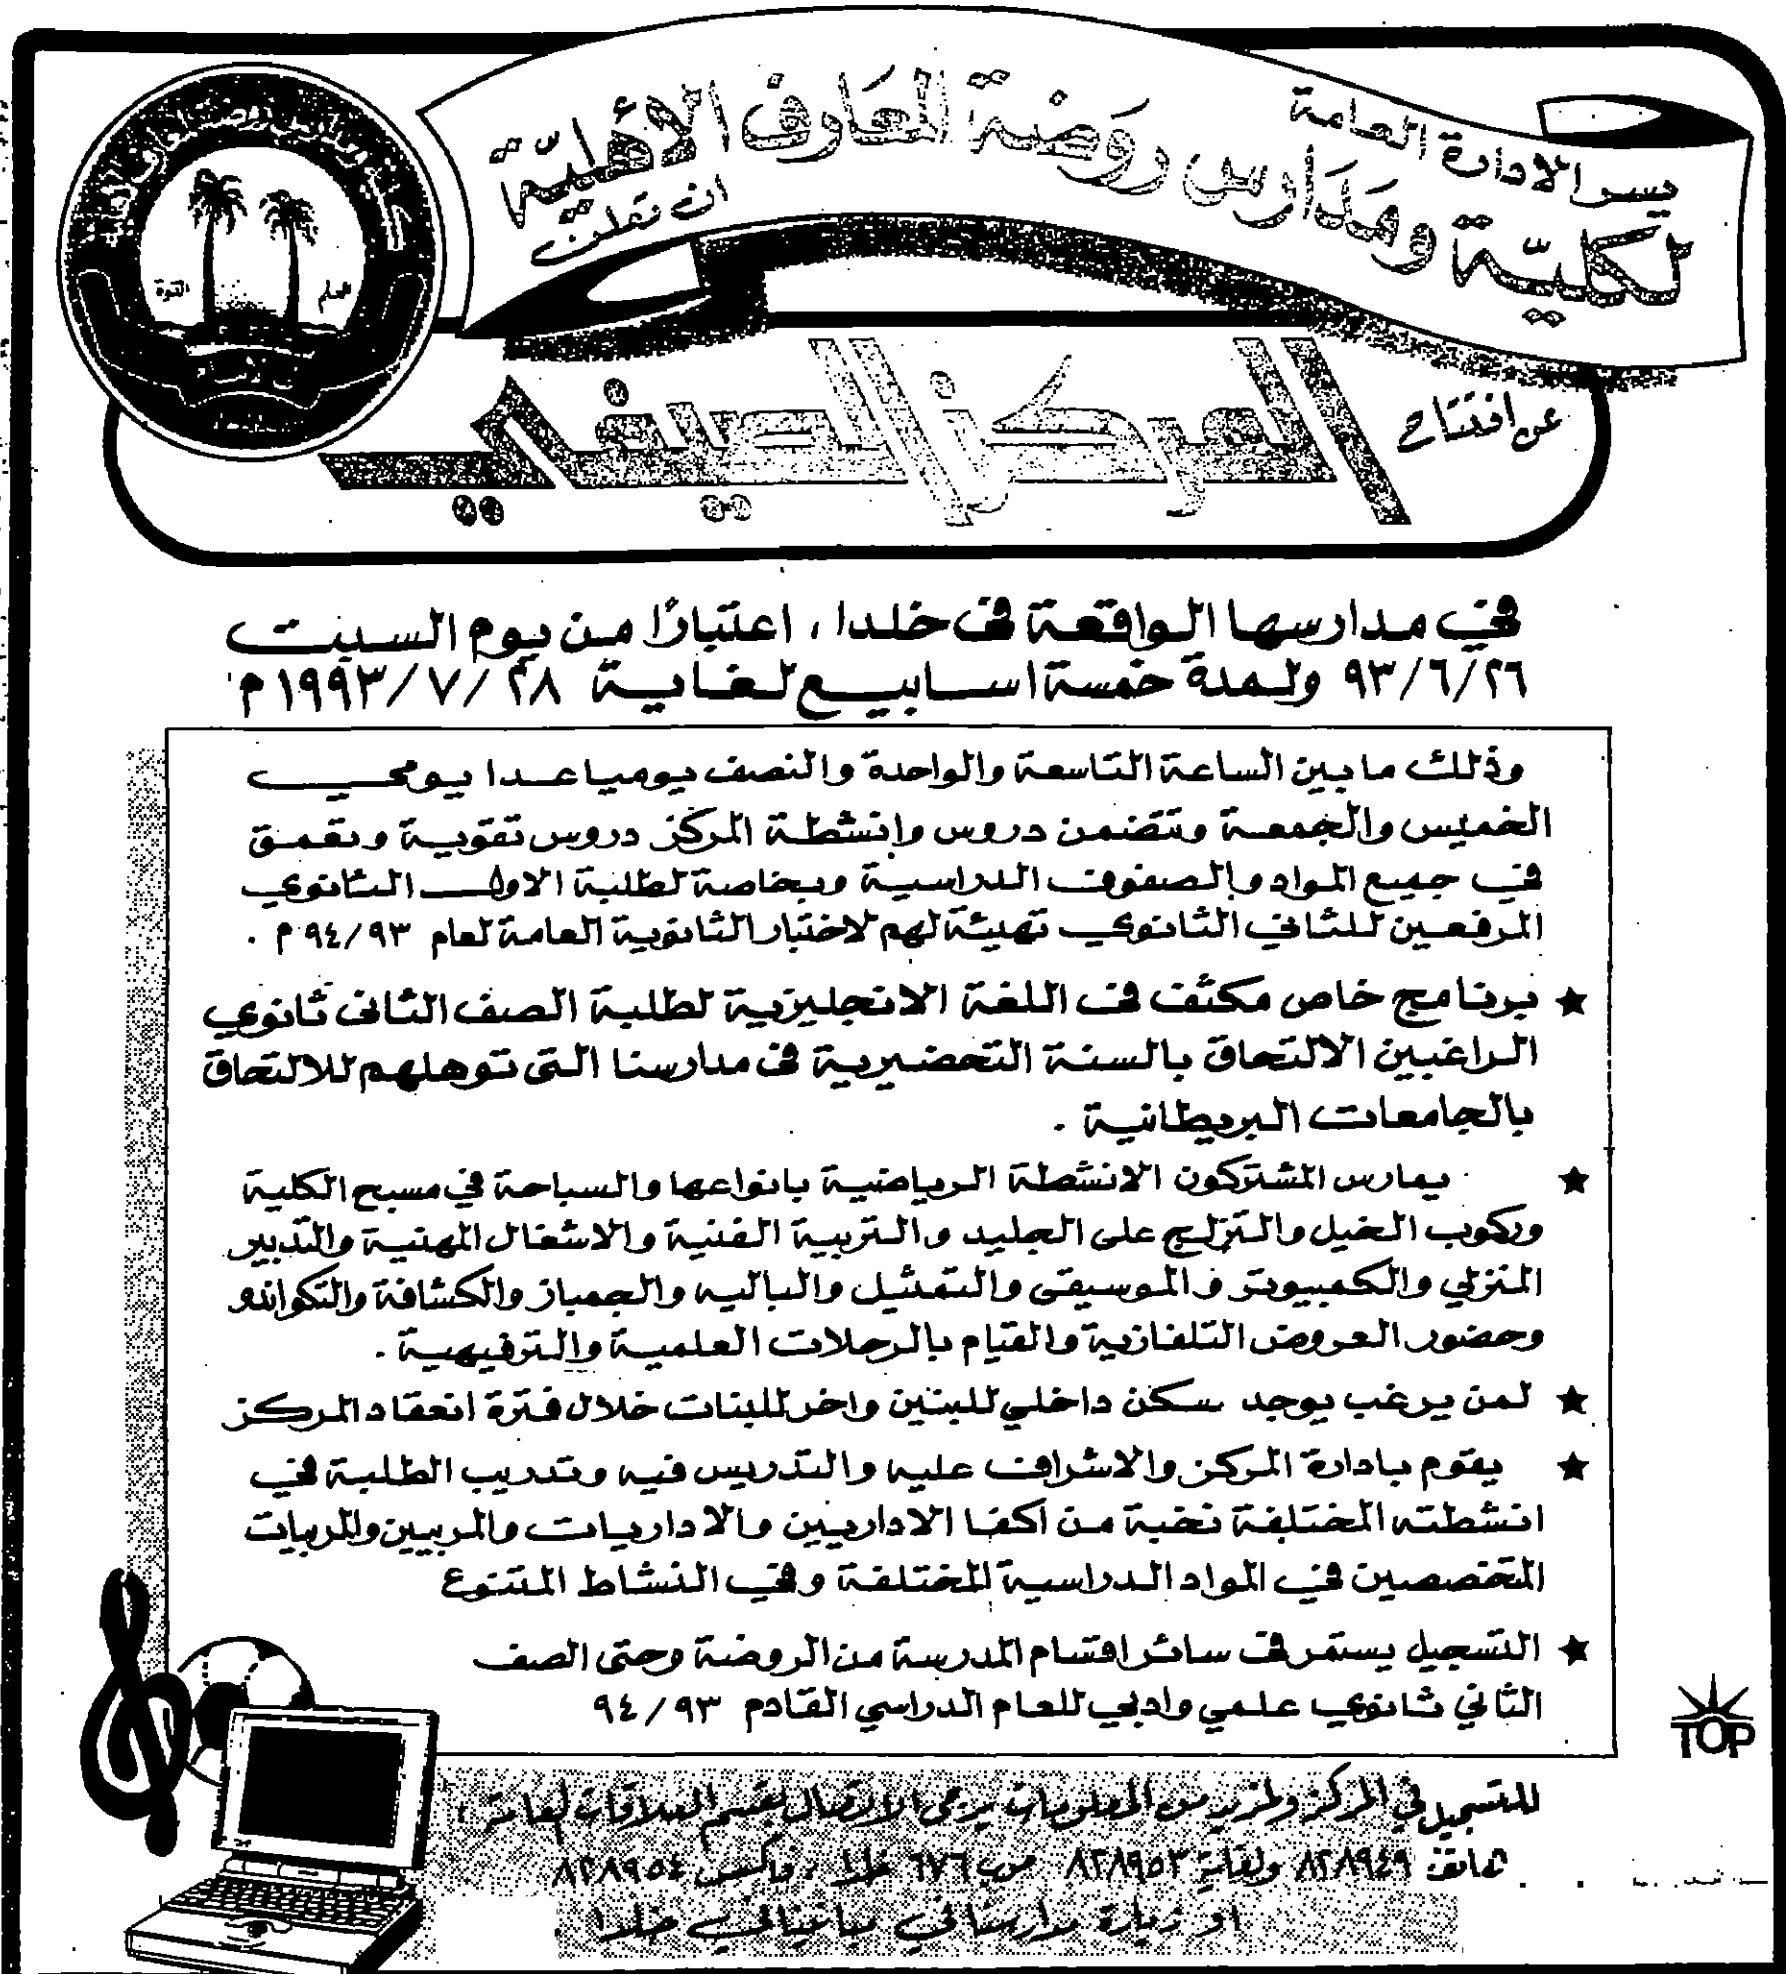 يسر الادارة العامة
لكليّة ومَدَارس روَضة المعَارف الأهليّة
ان تعلن
عن افتتاح
المركز الصيفي
العلم
القوة
في مدارسها الواقعة في خلدا ، اعتبارًا من يوم السبت
٩٣/٦/٢٦ ولمدة خمسة اسابيع لغاية ١٩٩٣/٧/٢٨م
وذلك مابين الساعة التاسعة والواحدة والنصف يوميا عدا يومي
الخميس والجمعة وتتضمن دروس وانشطة المركز دروس تقوية وتعمق
في جميع المواد والصفوف الدراسية وبخاصة لطلبة الاول الثانوي
المرفعين للثاني الثانوي تهيئة لهم لاختبار الثانوية العامة لعام ٩٤/٩٣ م .
★ برنامج خاص مكثف في اللغة الانجليزية لطلبة الصف الثاني ثانوي
الراغبين الالتحاق بالسنة التحضيرية في مدارسنا التي توهلهم للالتحاق
بالجامعات البريطانية .
★ يمارس المشتركون الانشطة الرياضية بانواعها والسباحة في مسبح الكلية
وركوب الخيل والتزلج على الجليد والتربية الفنية والاشغال المهنية والتدبير
المنزلي والكمبيوتر والموسيقى والتمثيل والباليه والجمباز والكشافة والتكواندو
وحضور العروض التلفازية والقيام بالرحلات العلمية والترفيهية .
★ لمن يرغب يوجد سكن داخلي للبنين واخر للبنات خلال فترة انعقاد المركز
★ يقوم بادارة المركز والاشراف عليه والتدريس فيه وتدريب الطلبة في
انشطته المختلفة نخبة من اكفا الاداريين والاداريات والمربيين والمربيات
المتخصصين في المواد الدراسية المختلفة وفي النشاط المتنوع
★ التسجيل يستمر في سائر اقسام المدرسة من الروضة وحتى الصف
الثاني ثانوي علمي وادبي للعام الدراسي القادم ٩٤/٩٣
TOP
للتسجيل في المركز ولمزيد من المعلومات يرجى الاتصال بقسم العلاقات العامة
هاتف ٨٢٨٩٤٩ ولغاية ٨٢٨٩٥٣ ص.ب ٦٧٦ خلدا ، فاكس ٨٢٨٩٥٤
او زيارة مدارسنا في مبانينا في خلدا .